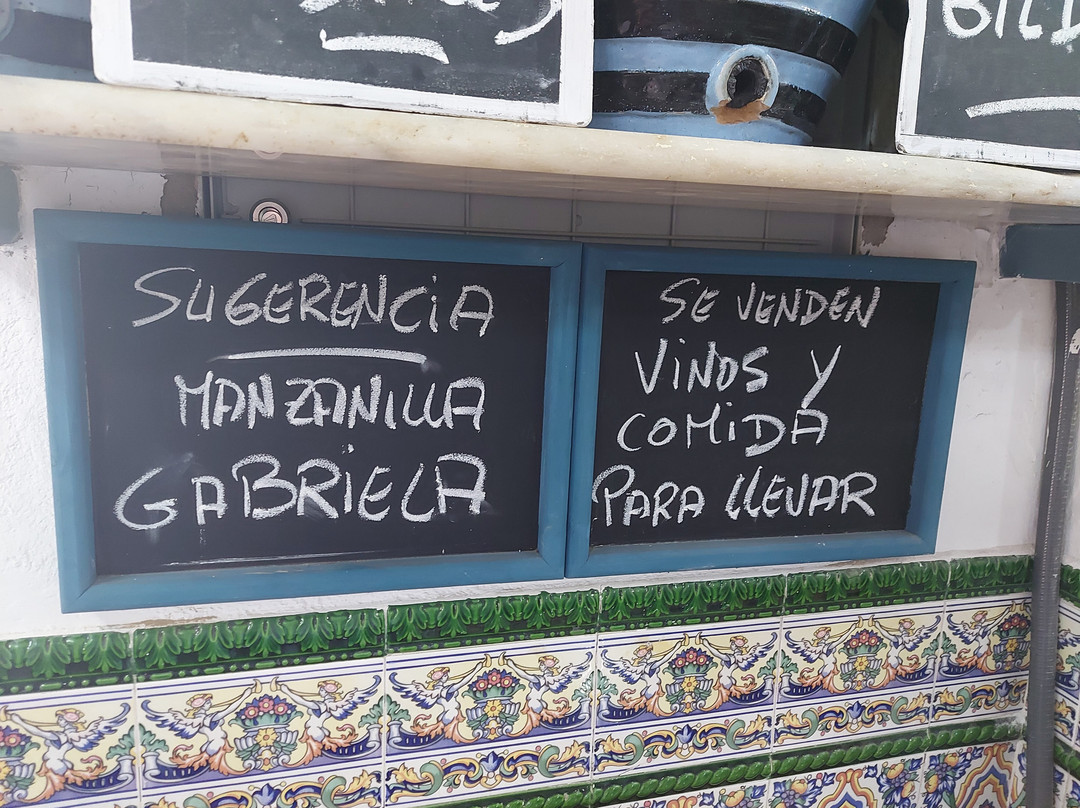 SUGERENCiA
MANZANILLA
GABRiELA
SE VENDEN
ViNOS Y
COMiDA
PARA LLEVAR